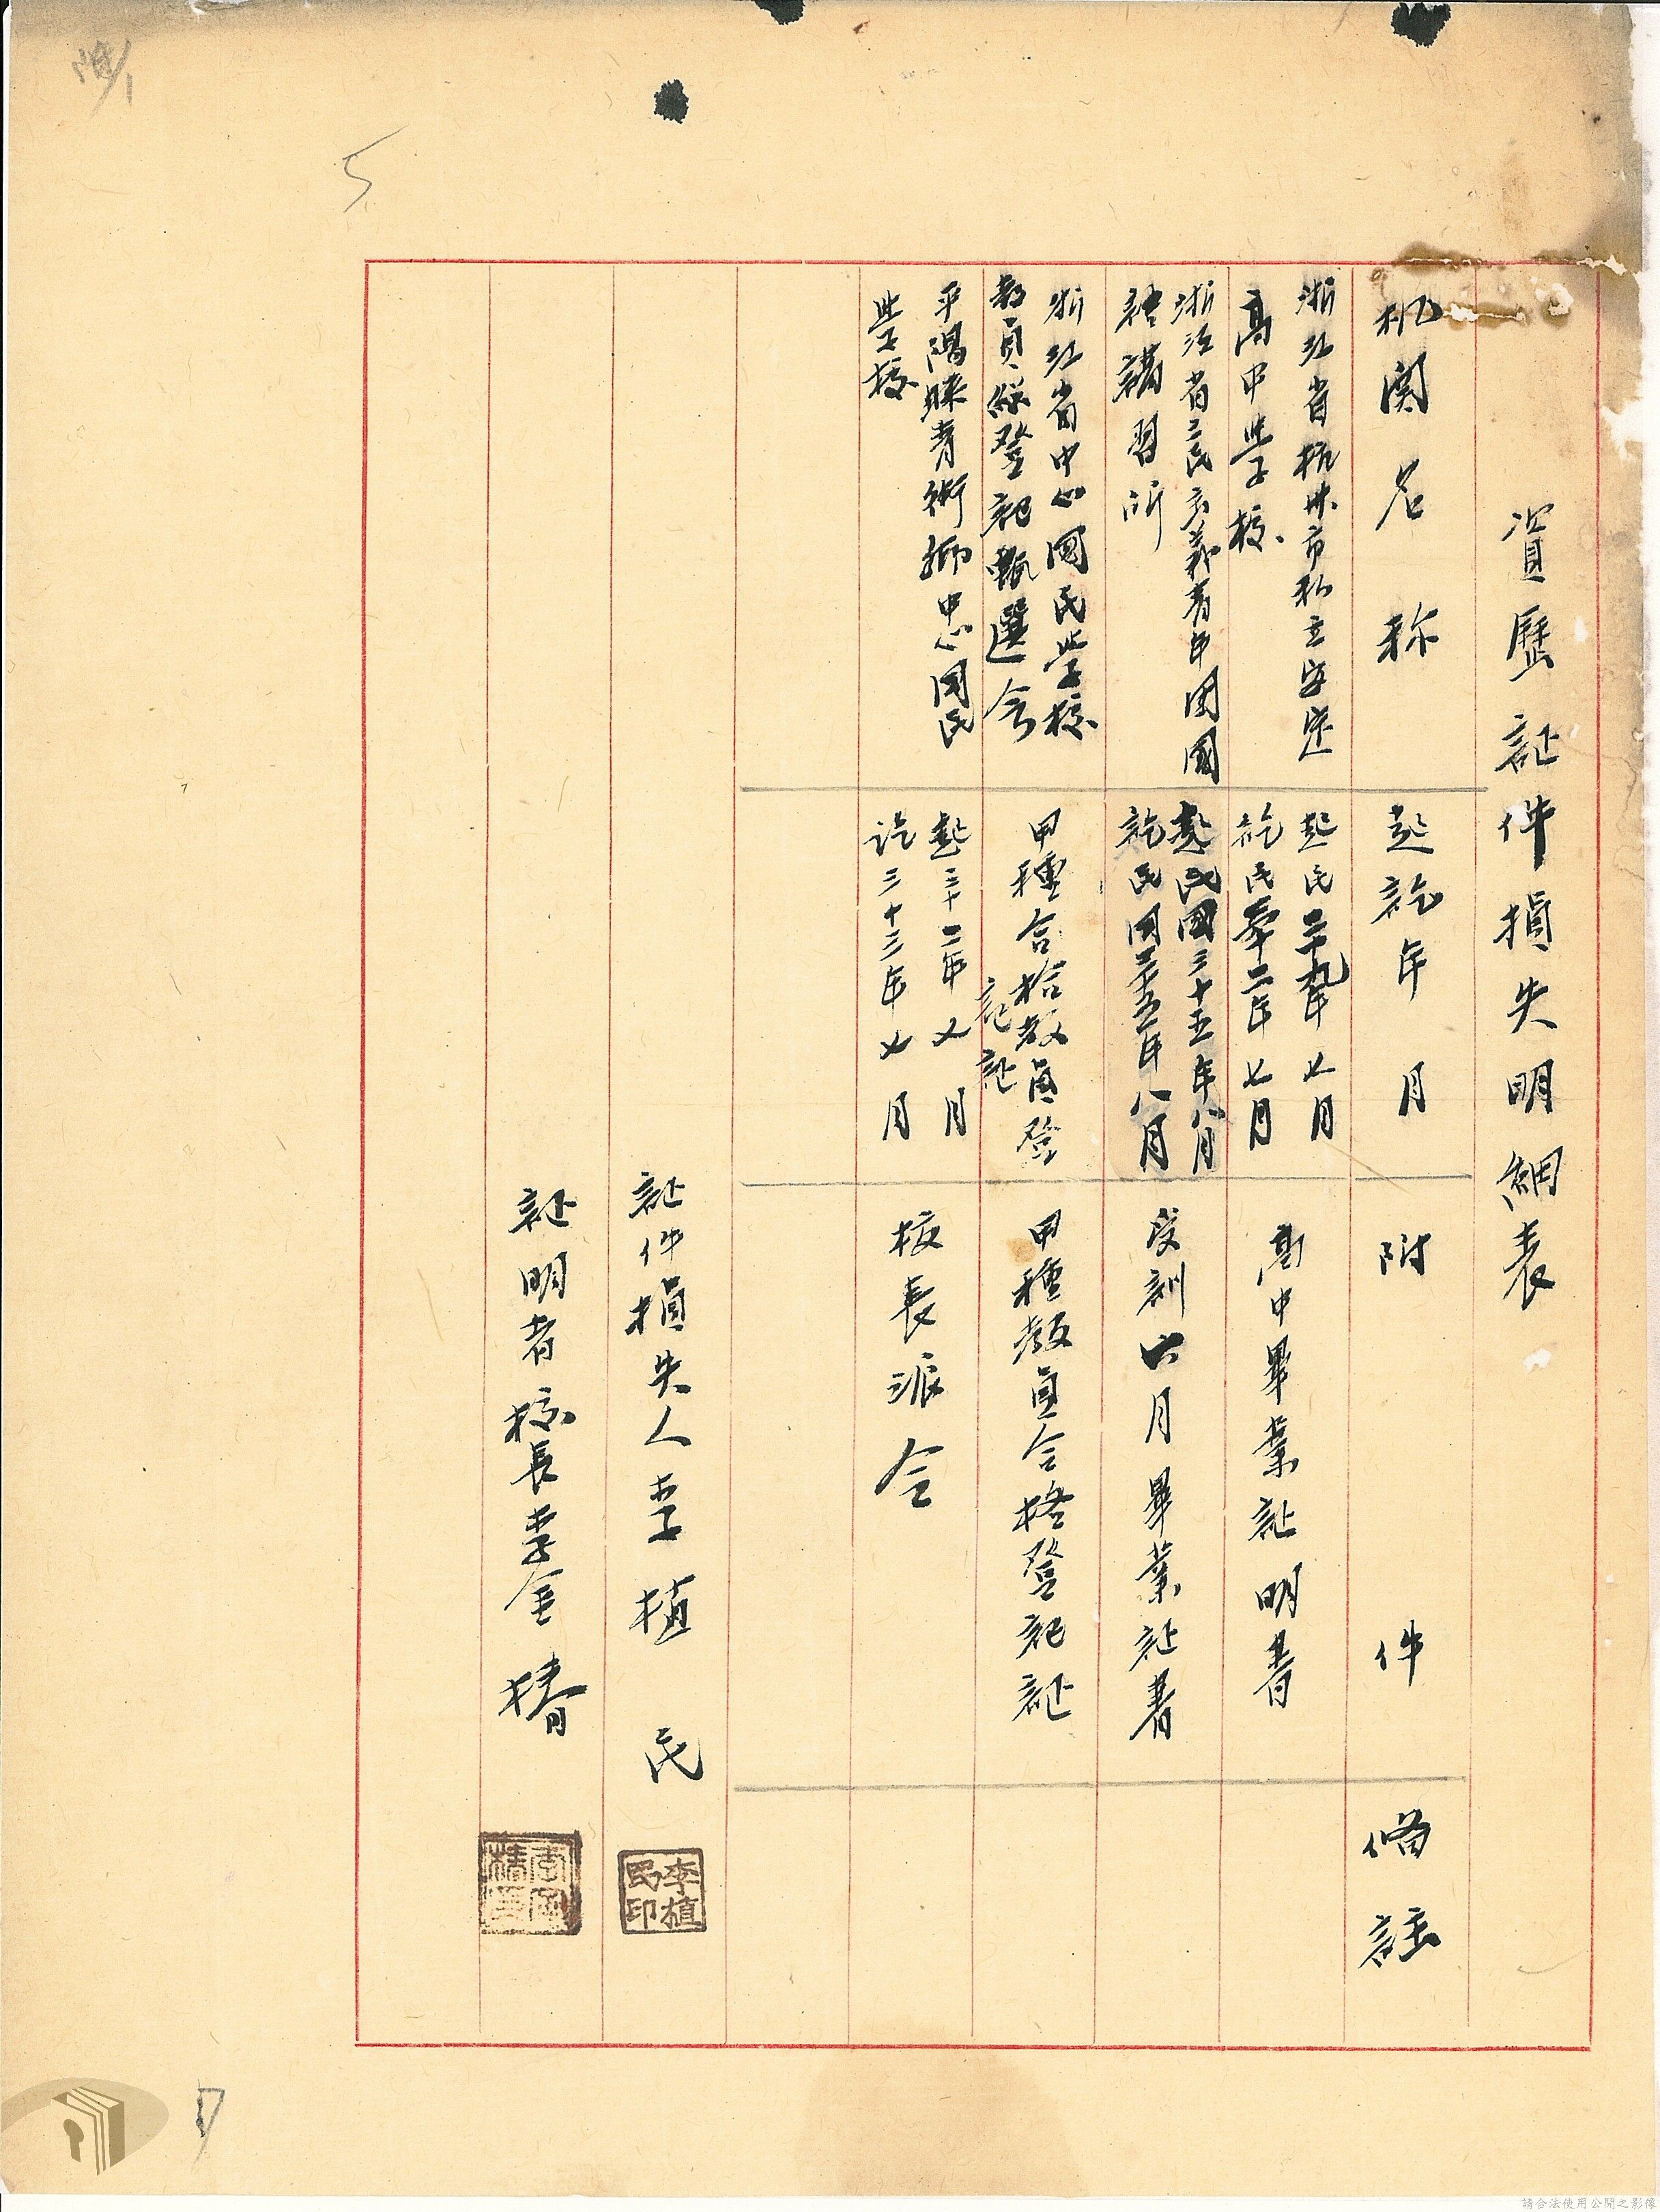 資歷証件損失明細表
机関名称
起訖年月
附件
俻註
浙江省杭州市私立安定
高中學校
起民二十九年七月
訖民三十二年七月
高中畢業証明書
浙江省三民主義青年團國
語講習所
起民國三十五年八月
訖民國三十五年八月
受訓六月畢業証書
浙江省中心國民學校
教員總登記甄選会
甲種合格教員登
記証
甲種教員合格登記証
平陽縣青街鄉中心國民
學校
起三十二年七月
訖三十三年七月
校長派令
証件損失人李植民
李植民印
証明者校長李金
5
請合法使用公開之影像